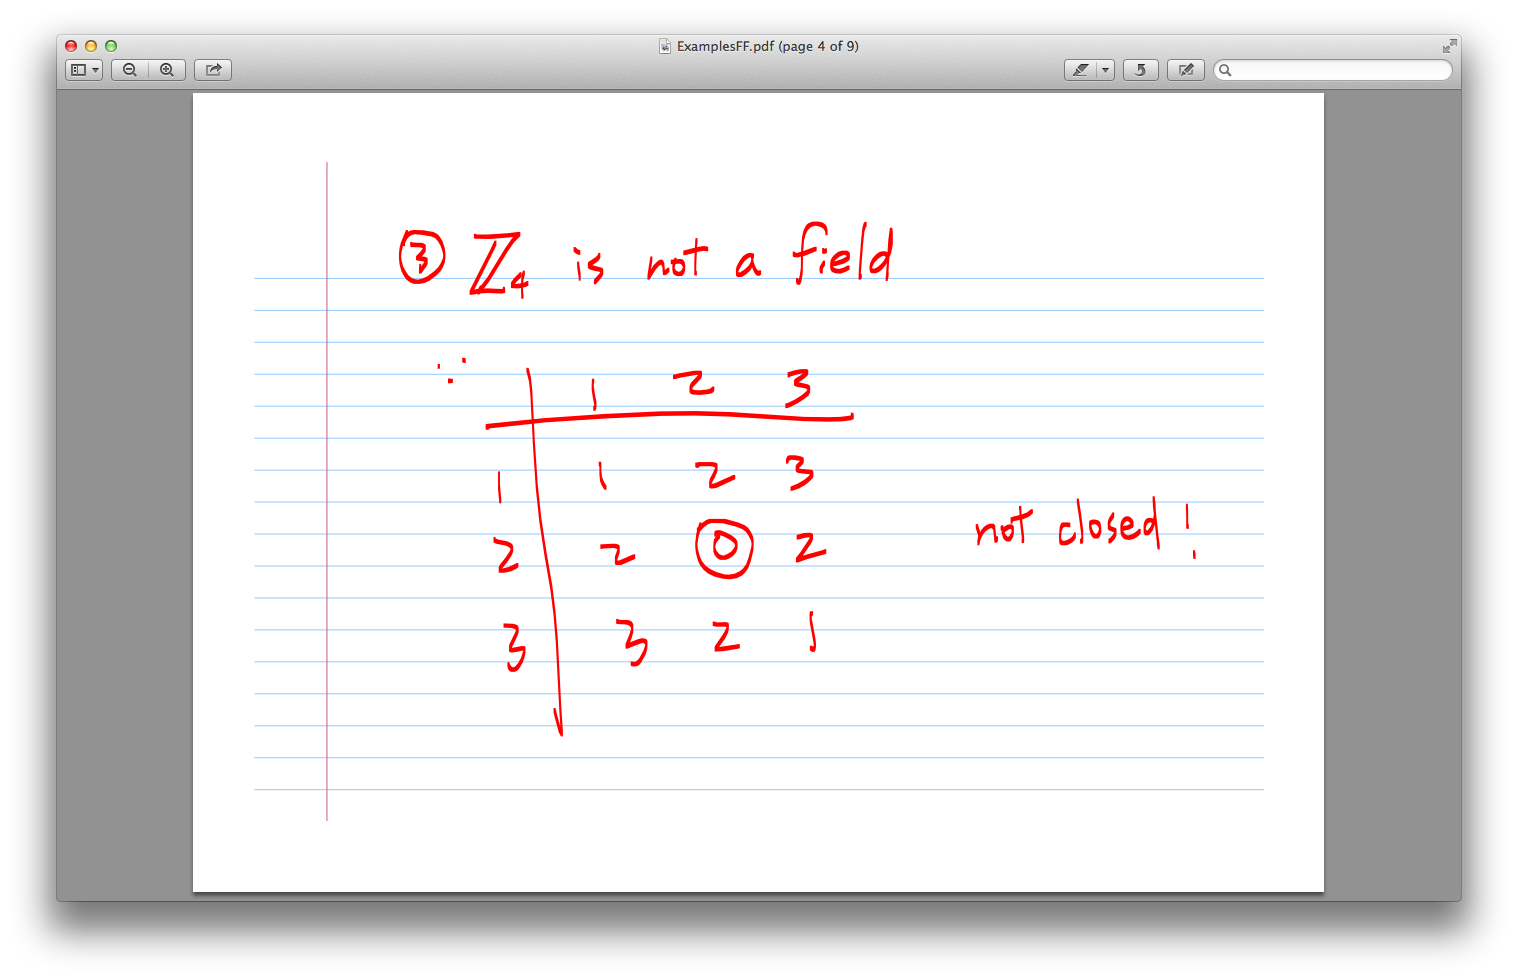 ExamplesFF.pdf (page 4 of 9)
③ ℤ₄ is not a field
∵ 1 2 3
1 1 2 3
2 2 0 2 not closed!
3 3 2 1